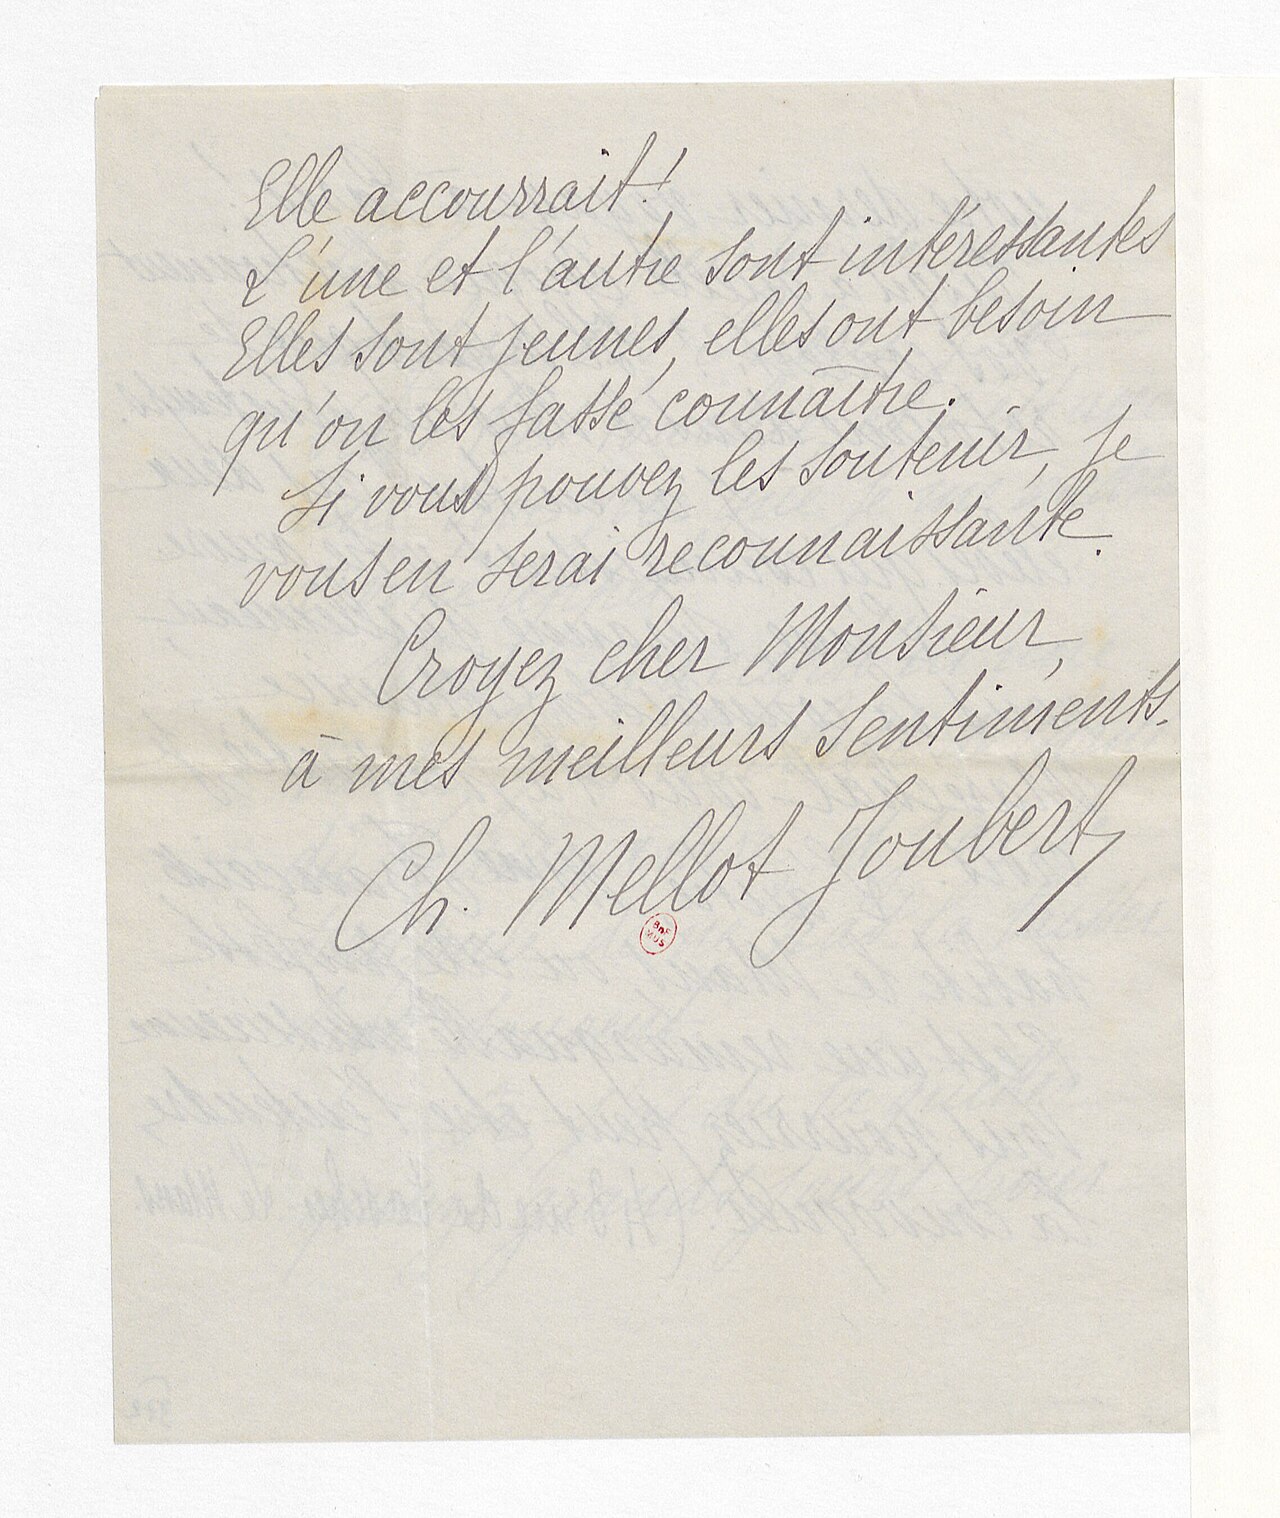 Elle accourrait!
L'une et l'autre sont intéressantes
Elles sont jeunes, elles ont besoin
qu'on les fasse connaître.
Si vous pouvez les soutenir, je
vous en serai reconnaissante.
Croyez cher Monsieur,
à mes meilleurs sentiments.
Ch. Mellot Joubert
BnF
MUS